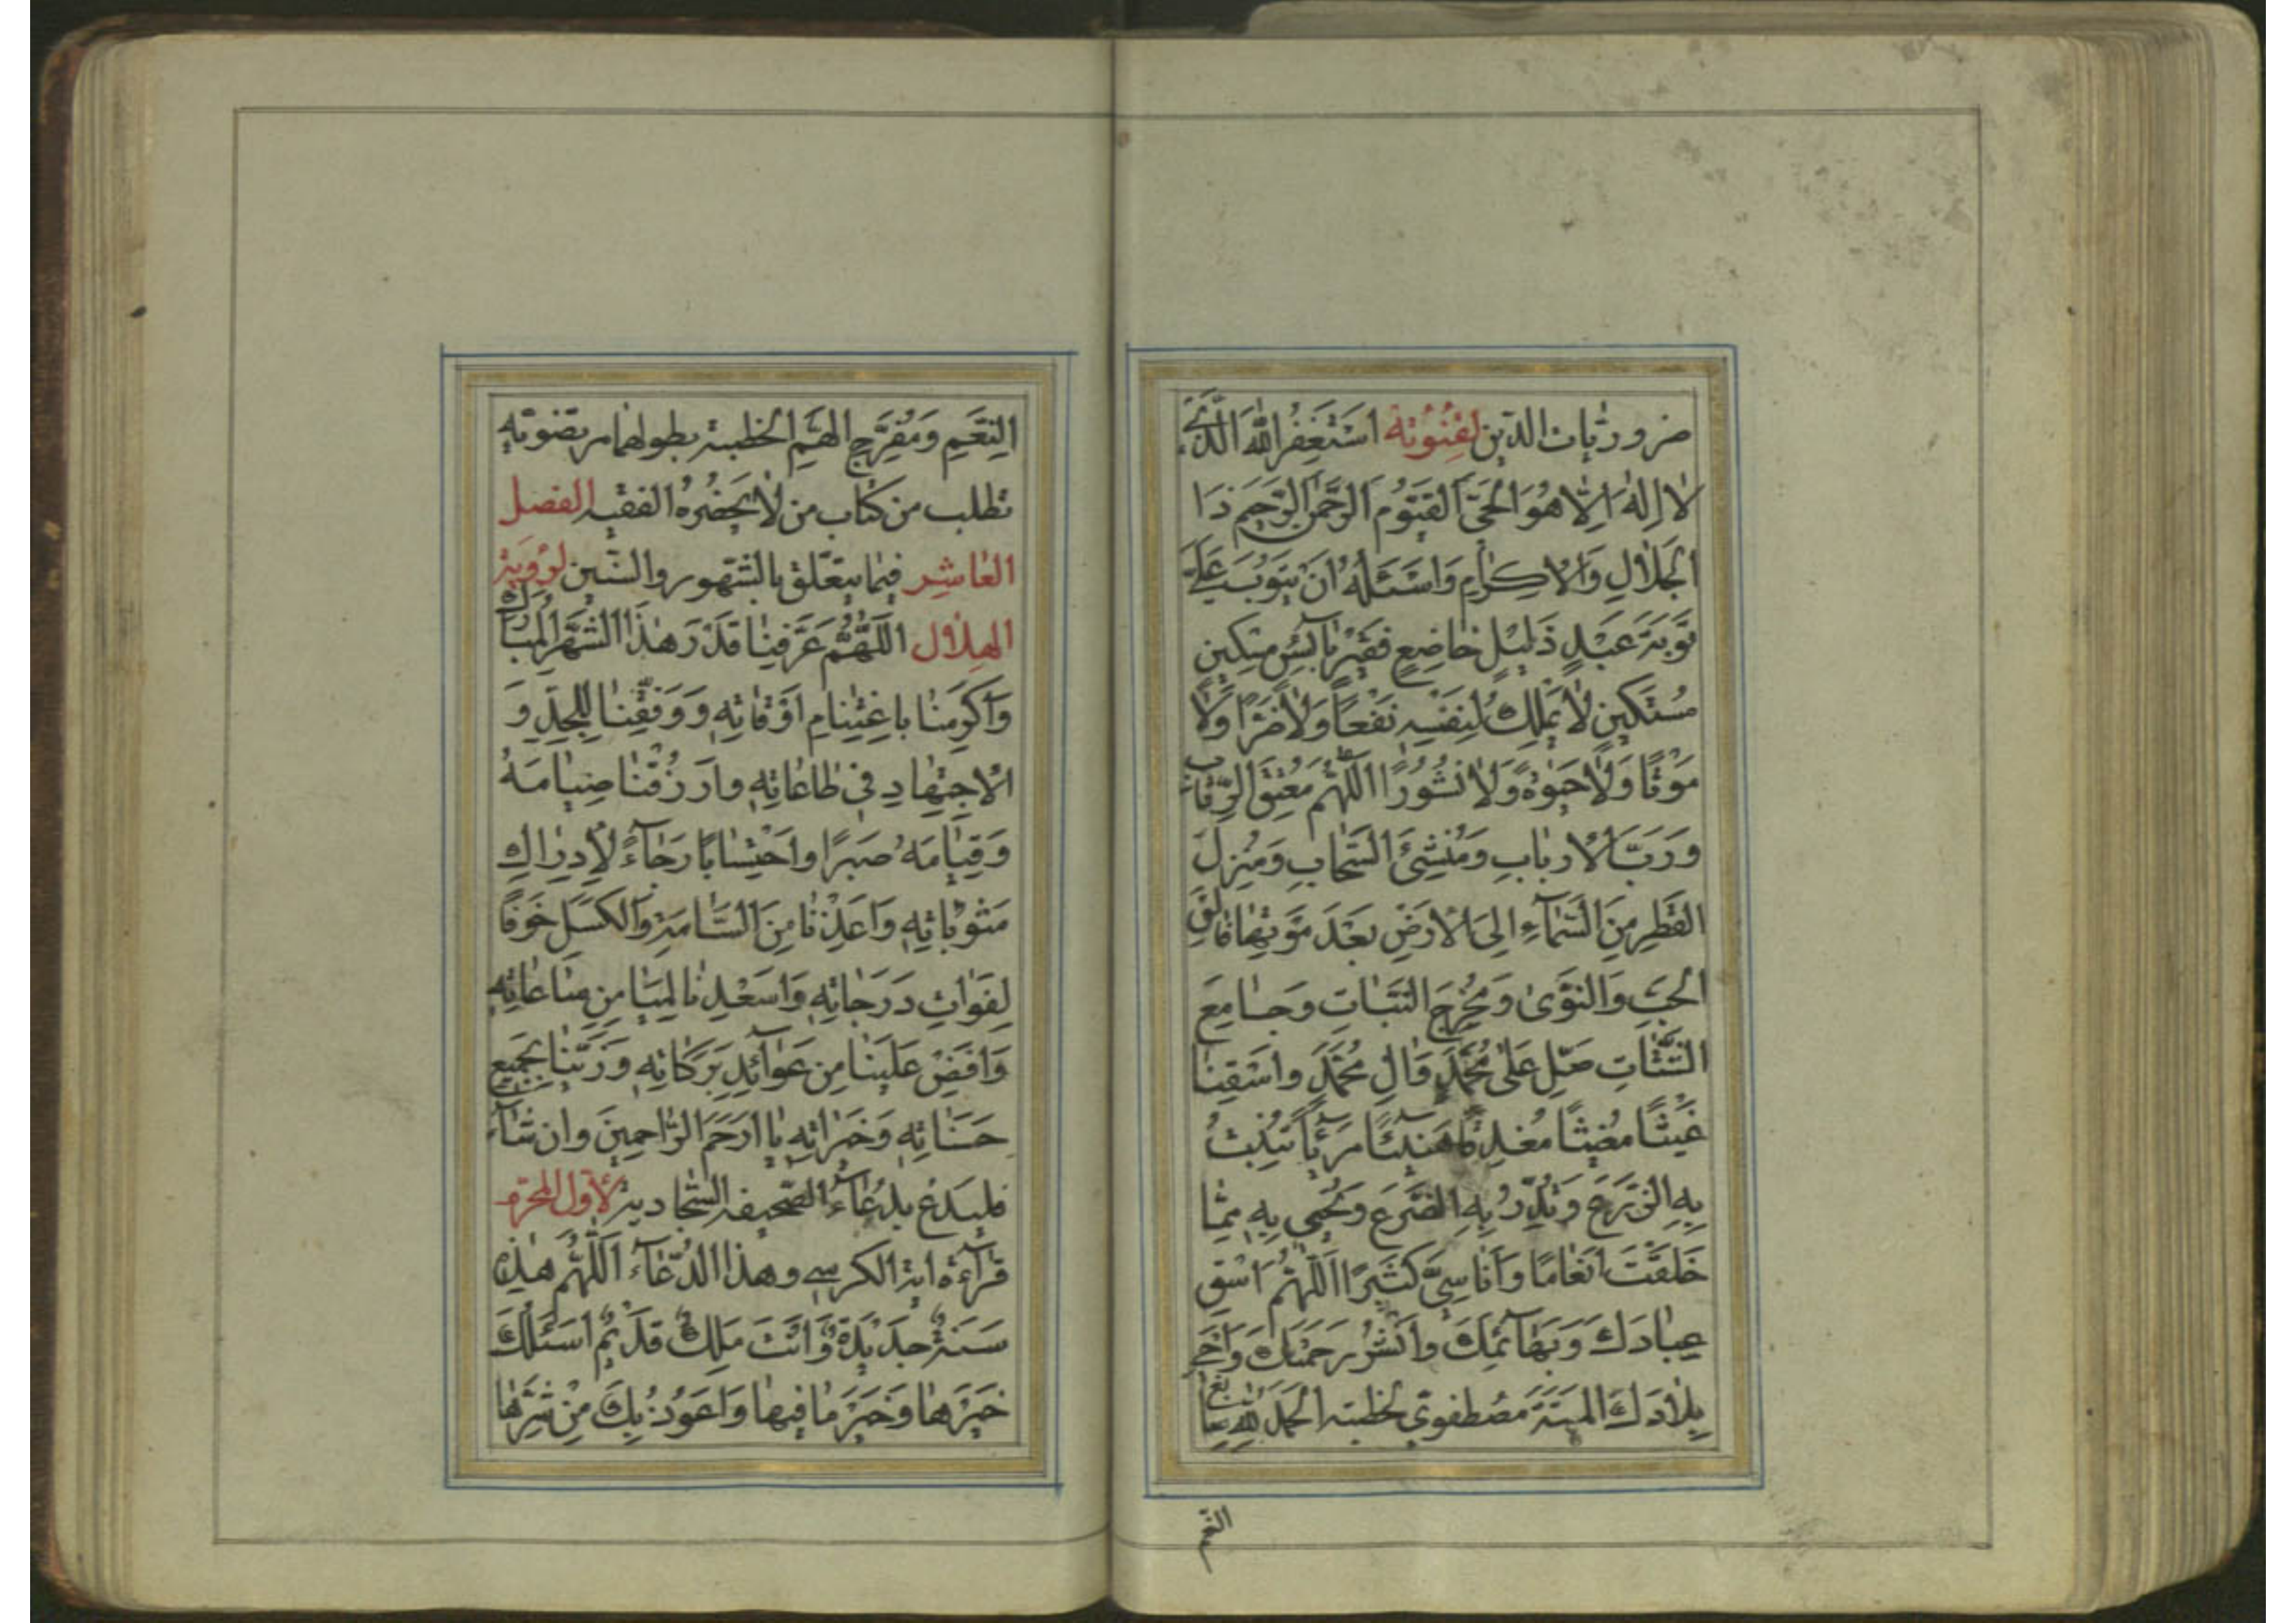 ضروريات الدين لقنوته اَسْتَغْفِرُ اللهَ الَّذى
لا اِلٰهَ اِلّا هُوَ الْحَىَّ الْقَيُّومَ الرَّحْمٰنَ الرَّحيمَ ذَا
الْجَلالِ وَالْاِكْرامِ وَاَسْئَلُهُ اَنْ يَتُوبَ عَلَىَّ
تَوْبَةَ عَبْدٍ ذَليلٍ خاضِعٍ فَقيرٍ بآئِسٍ مِسْكينٍ
مُسْتَكينٍ لا يَمْلِكُ لِنَفْسِهِ نَفْعًا وَلا ضَرًّا وَلا
مَوْتًا وَلا حَيٰوةً وَلا نُشُورًا اَللّٰهُمَّ مُعْتِقَ الرِّقابِ
وَرَبَّ الْاَرْبابِ وَمُنْشِئَ السَّحابِ وَمُنْزِلَ
الْقَطْرِ مِنَ السَّمآءِ اِلَى الْاَرْضِ بَعْدَ مَوْتِها فالِقَ
الْحَبِّ وَالنَّوٰى وَمُخْرِجَ النَّباتِ وَجامِعَ
الشَّتاتِ صَلِّ عَلىٰ مُحَمَّدٍ وَآلِ مُحَمَّدٍ وَاسْقِنا
غَيْثًا مُغيثًا مُغْدِقًا هَنيئًا مَريئًا تُنْبِتُ
بِهِ الزَّرْعَ وَتُدِرُّ بِهِ الضَّرْعَ وَتُحْيى بِهِ مِمّا
خَلَقْتَ اَنْعامًا وَاَناسِىَّ كَثيرًا اَللّٰهُمَّ اسْقِ
عِبادَكَ وَبَهآئِمَكَ وَانْشُرْ رَحْمَتَكَ وَاَحْىِ
بِلادَكَ الْمَيِّتَةَ مصطفوى لخطبته اَلْحَمْدُ لِلّٰهِ سابغ
النعم
النِّعَمِ وَمُفَرِّجِ الْهَمِّ الخطبة بطولهما مرتضوته
تطلب من كتاب من لا يحضره الفقيه الفصل
العاشر فيما يتعلّق بالشهور والسنين لرؤية
الهلال اَللّٰهُمَّ عَرِّفْنا قَدْرَ هٰذَا الشَّهْرِ الْمُبارَكِ
وَاَكْرِمْنا بِاغْتِنامِ اَوْقاتِهِ وَوَفِّقْنا لِلْجِدِّ وَ
الْاِجْتِهادِ فى طاعاتِهِ وَارْزُقْنا صِيامَهُ
وَقِيامَهُ صَبْرًا وَاحْتِسابًا رَجآءً لِاِدْراكِ
مَثُوباتِهِ وَاَعِذْنا مِنَ السَّامَةِ وَالْكَسَلِ خَوْفًا
لِفَواتِ دَرَجاتِهِ وَاَسْعِدْنا لميامن ساعاتِهِ
وَاَفِضْ عَلَيْنا مِنْ عَوآئِدِ بَرَكاتِهِ وَزَيِّنّا بِجَميعِ
حَسَناتِهِ وَخَيْراتِهِ يا اَرْحَمَ الرّاحِمينَ وان شآء
فليدع بدعآء الصحيفة السجادية لاول المحرم
قرآءة اية الكرسى وهذا الدعآء اَللّٰهُمَّ هٰذِهِ
سَنَةٌ جَديدَةٌ وَاَنْتَ مَلِكٌ قَديمٌ اَسْئَلُكَ
خَيْرَها وَخَيْرَ ما فيها وَاَعُوذُ بِكَ مِنْ شَرِّها